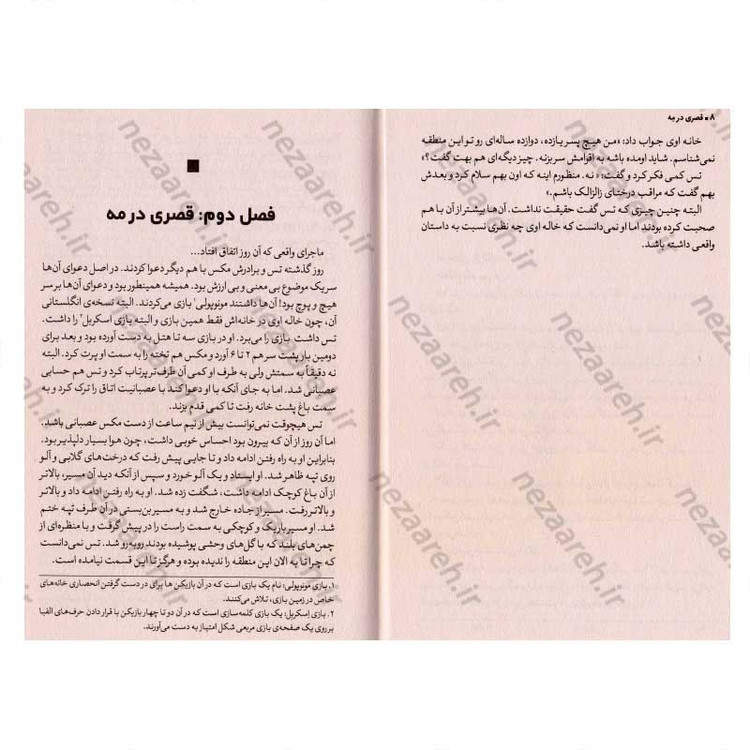 ۸ ■ قصری در مه
خانه اوی جواب داد: «من هیچ پسر یازده، دوازده ساله‌ای رو تو این منطقه
نمی‌شناسم. شاید اومده باشه به اقوامش سر بزنه. چیز دیگه‌ای هم بهت گفت؟»
تس کمی فکر کرد و گفت: « نه. منظورم اینه که اون بهم سلام کرد و بعدش
بهم گفت که مراقب درختای زالزالک باشم.»
البته چنین چیزی که تس گفت حقیقت نداشت. آن‌ها بیشتر از آن با هم
صحبت کرده بودند اما او نمی‌دانست که خاله اوی چه نظری نسبت به داستان
واقعی داشته باشد.
فصل دوم: قصری در مه
ماجرای واقعی که آن روز اتفاق افتاد...
روز گذشته تس و برادرش مکس با هم دیگر دعوا کردند. در اصل دعوای آن‌ها
سر یک موضوع بی معنی و بی ارزش بود. همیشه همینطور بود و دعوای آن‌ها بر سر
هیچ و پوچ بود! آن‌ها داشتند مونوپولی۱ بازی می‌کردند. البته نسخه‌ی انگلستانی
آن، چون خاله اوی در خانه‌اش فقط همین بازی و البته بازی اسکربل۲ را داشت.
تس داشت بازی را می‌برد. او در بازی سه تا هتل به دست آورده بود و بعد برای
دومین بار پشت سر هم ۲ تا ۶ آورد و مکس هم تخته را به سمت او پرت کرد. البته
نه دقیقاً به سمتش ولی به طرف او کمی آن طرف‌تر پرتاب کرد و تس هم حسابی
عصبانی شد. اما به جای آنکه با او دعوا کند با عصبانیت اتاق را ترک کرد و به
سمت باغ پشت خانه رفت تا کمی قدم بزند.
تس هیچوقت نمی‌توانست بیش از نیم ساعت از دست مکس عصبانی باشد.
اما آن روز از آن که بیرون بود احساس خوبی داشت، چون هوا بسیار دلپذیر بود.
بنابراین او به راه رفتن ادامه داد و تا جایی پیش رفت که درخت‌های گلابی و آلو
روی تپه ظاهر شد. او ایستاد و یک آلو خورد و سپس از آنکه دید آن مسیر، بالاتر
از آن باغ کوچک ادامه داشت، شگفت زده شد. او به راه رفتن ادامه داد و بالاتر
و بالاتر رفت. مسیر از جاده خارج شد و به مسیر بن‌بستی در آن طرف تپه ختم
شد. او مسیر باریک و کوچکی به سمت راست را در پیش گرفت و با منظره‌ای از
چمن‌های بلند که با گل‌های وحشی پوشیده بودند روبه‌رو شد. تس نمی‌دانست
که چرا تا به الان این منطقه را ندیده بوده و هرگز تا این قسمت نیامده است.
۱. بازی مونوپولی: نام یک بازی است که در آن بازیکن ها برای در دست گرفتن انحصاری خانه‌های
خاص در زمین بازی، تلاش می‌کنند.
۲. بازی اسکربل: یک بازی کلمه‌سازی است که در آن دو تا چهار بازیکن با قرار دادن حرف‌های الفبا
بر روی یک صفحه‌ی بازی مربعی شکل امتیاز به دست می‌آورند.
nezaareh.ir
nezaareh.ir
nezaareh.ir
nezaareh.ir
nezaareh.ir
nezaareh.ir
nezaareh.ir
nezaareh.ir
nezaareh.ir